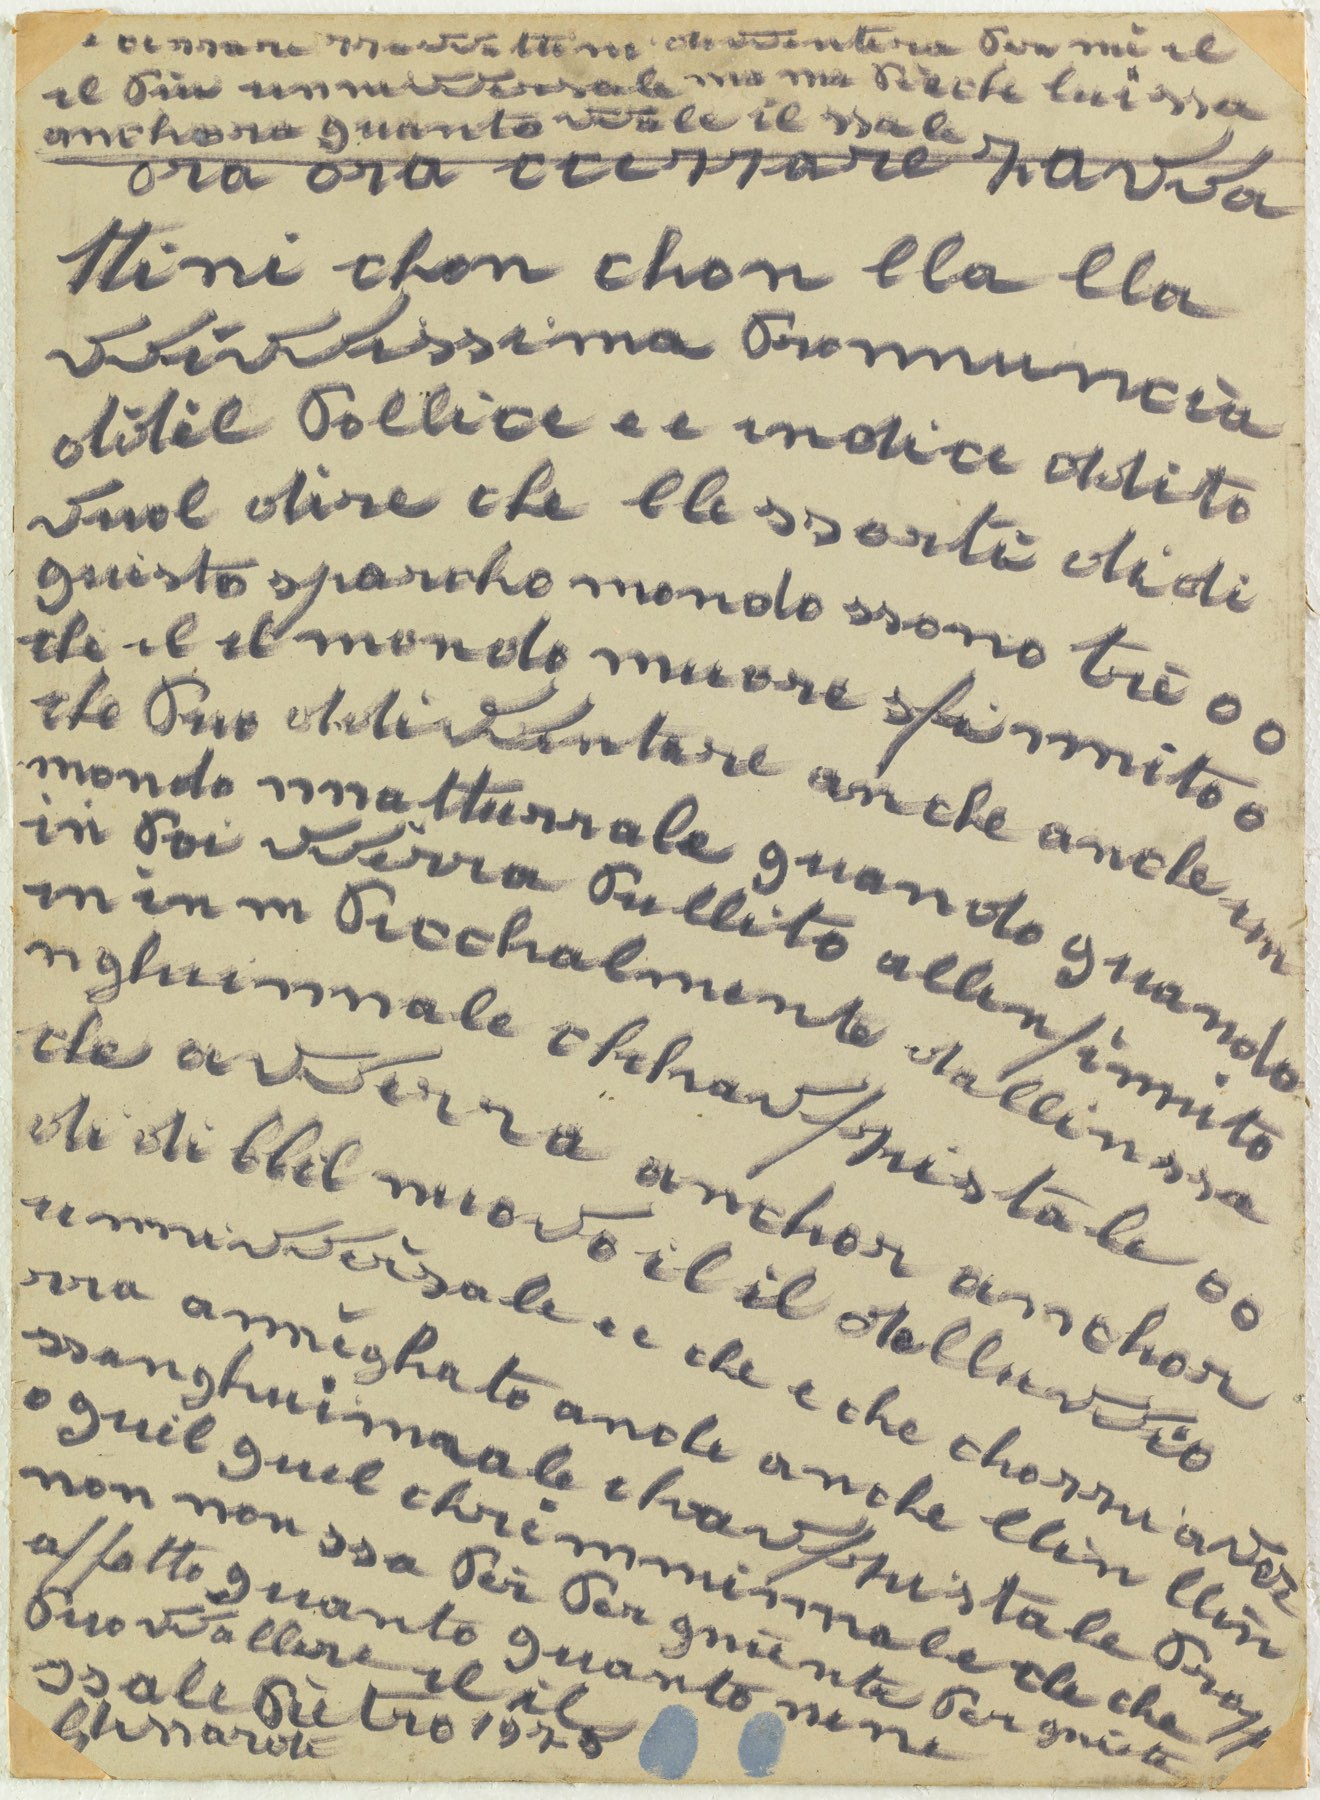 cierrare zzavvattini divventera Per mi il
il Piu unnivversale ma ma Pieche luissa
anchora quanto vvale il ssale
ora ora ccerrare zavva
ttini chon chon lla lla
vvivvissima Pronnuncia
didil Pollice e e indice ddito
vuol dire che lle ssorti di di
quisto sparcho mondo ssono tre o o
che il il mondo muore sfinnito o
che Puo ddivventare anche anche un
mondo nnatturrale quando quando
in Poi vverra Pullito allinfinnito
in in m Picchalmente dallinssa
nghuinnale chhavfristale o o
che avverra anchor anchor
di di bbil nuovo il il delluvvio
unnivversale e e che e che chorru avver
rra annighato anche anche llin llin
ssanghuinnale chavfristale Pro
o quil quil chrimminnale che che
non non ssa Per Per gniente Per gniete
affatto quanto quanto nene
Puo vvallere il il
ssale Pietro 1975
Ghizzardi